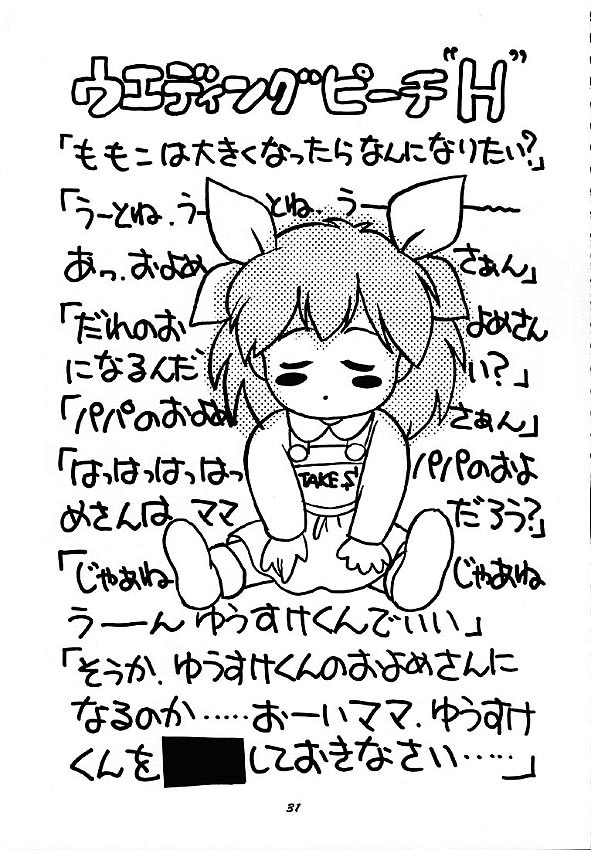 ウエディングピーチ"H"
「ももこは大きくなったらなんになりたい?」
「うーとね.うーとね.うー〜
あっ.およめさぁん」
「だれのおよめさん
になるんだい?」
「パパのおよめさぁん」
「はっはっはっはっパパのおよ
めさんは、ママだろう?」
「じゃあねじゃあね
うーんゆうすけくんでいい」
「そうか.ゆうすけくんのおよめさんに
なるのか……おーいママ.ゆうすけ
くんをしておきなさい……」
TAKE$
31